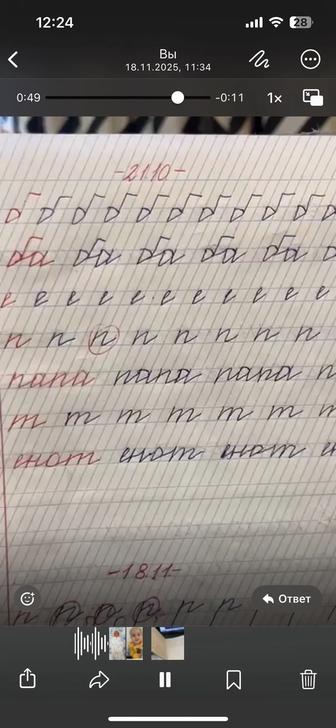 12:24
28
Вы
18.11.2025, 11:34
0:49
-0:11
1x
-21.10-
б б б б б б б б б б б
ба ба ба ба ба
е е е е е е е е е е е
п п п п п п п п
папа папа папа п
т т т т т т т
енот енот енот
-18.11-
Ответ